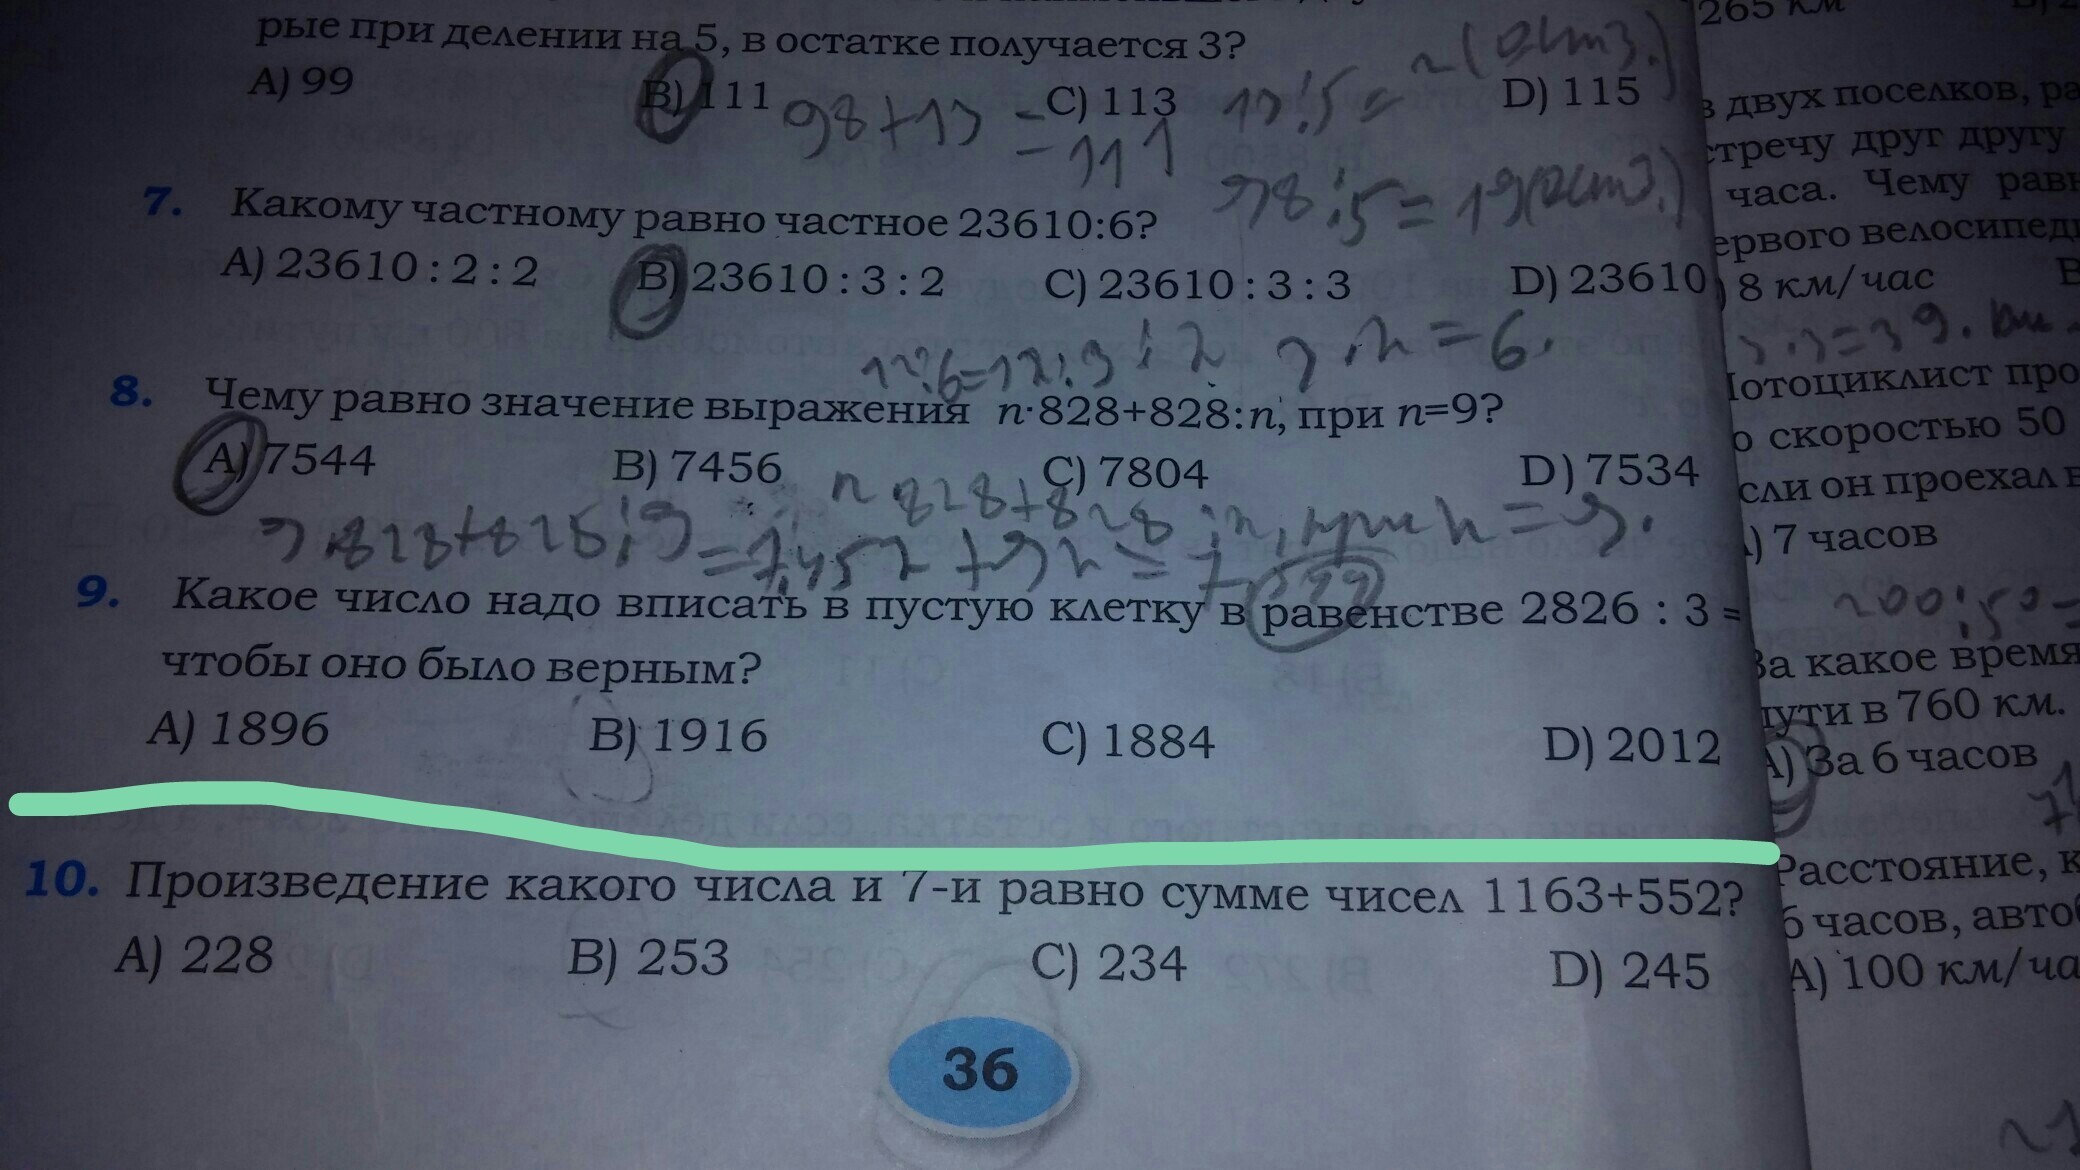 рые при делении на 5, в остатке получается 3?
А) 99 В) 111 С) 113 D) 115
98+13 =
= 111
98:5=19(ост3.)
7. Какому частному равно частное 23610:6?
А) 23610 : 2 : 2 В) 23610 : 3 : 2 С) 23610 : 3 : 3 D) 23610
8. Чему равно значение выражения n·828+828:n, при n=9?
А) 7544 В) 7456 С) 7804 D) 7534
n 828+828:n, при n=9.
9. Какое число надо вписать в пустую клетку в равенстве 2826 : 3 =
чтобы оно было верным?
А) 1896 В) 1916 С) 1884 D) 2012
10. Произведение какого числа и 7-и равно сумме чисел 1163+552?
А) 228 В) 253 С) 234 D) 245
36
265 км
двух поселков, ра
стречу друг другу
часа. Чему равн
ервого велосипед
8 км/час
отоциклист про
о скоростью 50
сли он проехал в
) 7 часов
200:50=
За какое время
пути в 760 км.
А) За 6 часов
Расстояние, к
6 часов, авто
А) 100 км/ча